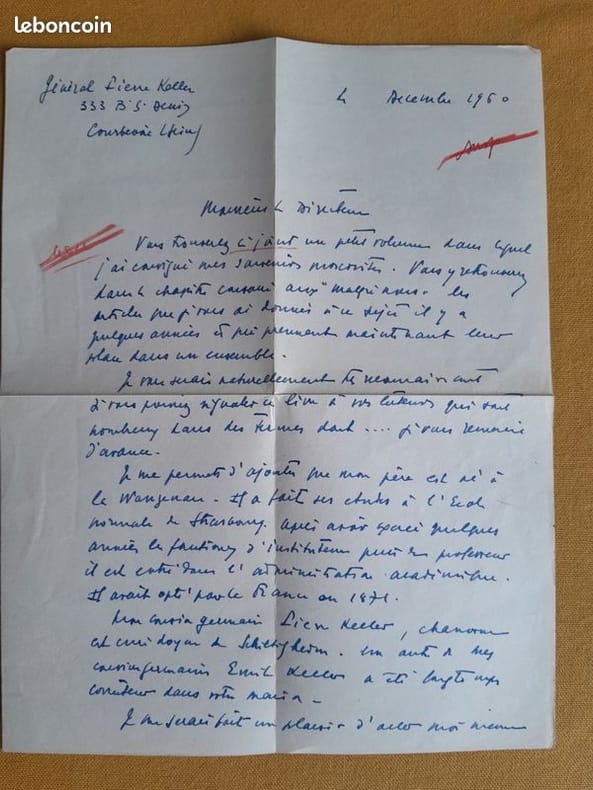 leboncoin
Général Pierre Keller
333 B. S. Denis
Courbevoie (Seine)
4 Decembre 1960
Monsieur le Directeur
Vous trouverez ci joint un petit volume dans lequel
j'ai consigné mes souvenirs moscovites. Vous y retrouverez
dans le chapitre consacré aux "malgré nous" les
articles que je vous ai donnés à ce sujet il y a
quelques années et qui prennent maintenant leur
place dans un ensemble.
Je vous serais naturellement très reconnaissant
si vous pouviez signaler ce livre à vos lecteurs qui sont
nombreux dans des termes dont .... je vous remercie
d'avance.
Je me permets d'ajouter que mon père est né à
la Wantzenau - Il a fait ses études à l'Ecole
normale de Strasbourg. Après avoir exercé quelques
années les fonctions d'instituteur puis de professeur
il est entré dans l'administration académique.
Il avait opté pour la France en 1871.
Mon cousin germain Pierre Keller, chanoine
est curé doyen de Schiltigheim. Un autre de mes
cousins germains Emile Keller a été longtemps
correcteur dans votre maison -
Je me serais fait un plaisir d'aller moi même